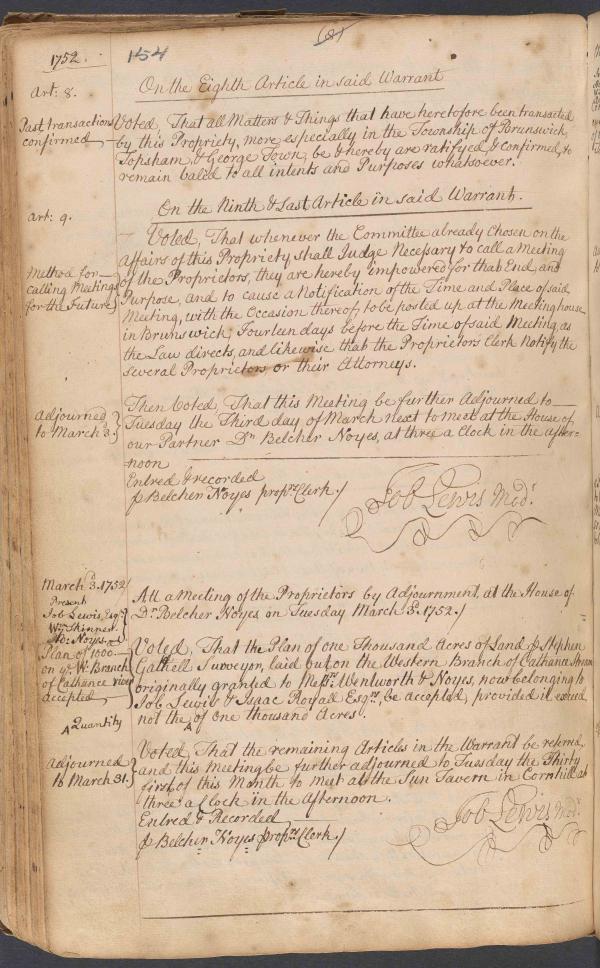 (8)
1752.
154
Art: 8.
On the Eighth Article in said Warrant
Past transactions
confirmed
Voted, That all Matters & Things that have heretofore been transacted
by this Propriety, more especially in the Township of Brunswick,
Topsham, & George Town, be & hereby are ratifyed & Confirmed, to
remain Valid to all intents and Purposes whatsoever.
Art: 9.
On the Ninth & Last Article in said Warrant.
Method for
calling Meetings
for the Future
Voted, That whenever the Committee already Chosen on the
Affairs of this Propriety shall Judge Necessary to call a Meeting
of the Proprietors, they are hereby impowered for that End, and
Purpose, and to cause a Notification of the Time and Place of said
Meeting, with the Occasion thereof, to be posted up at the Meeting house
in Brunswick, Fourteen days before the Time of said Meeting, as
the Law directs, and likewise that the Proprietors Clerk Notify the
several Proprietors or their Attorneys.
Adjourned
to March 3.
Then Voted, That this Meeting be further Adjourned to
Tuesday the Third day of March next to meet at the House of
our Partner Dr Belcher Noyes, at three a Clock in the after-
noon
Entred & recorded
p Belcher Noyes proprs Clerk.
Job Lewis Modr
March 3d. 1752
Present
Job Lewis, Esqr
Wm Skinner
Plan of 1000
on ye Wn Branch
of Cathance river
accepted
At a Meeting of the Proprietors by Adjournment, at the House of
Dr Belcher Noyes on Tuesday March 3d. 1752.
Voted, That the Plan of one Thousand Acres of Land p Stephen
Gatchell Surveyor, laid out on the Western Branch of Cathance Stream
originally granted to Messrs Wentworth & Noyes, now belonging to
Job Lewis & Isaac Royall Esqrs, be accepted, provided it exceed
not the ^ of one thousand Acres.
^ Quantity
Adjourned
to March 31.
Voted, That the remaining Articles in the Warrant be referred,
and this Meeting be further adjourned to Tuesday the Thirty
first of this Month to meet at the Sun Tavern in Cornhill at
three a Clock in the Afternoon.
Entred & Recorded
p Belcher Noyes proprs Clerk.
Job Lewis Modr